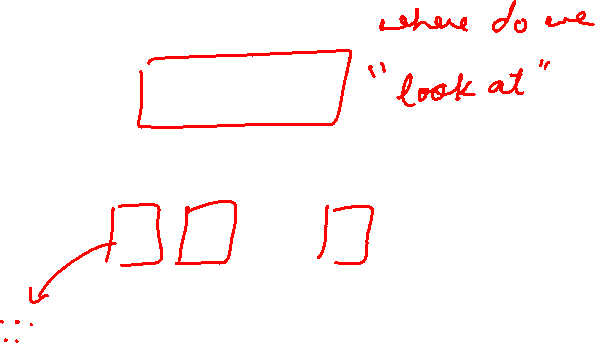 where do we
"look at"